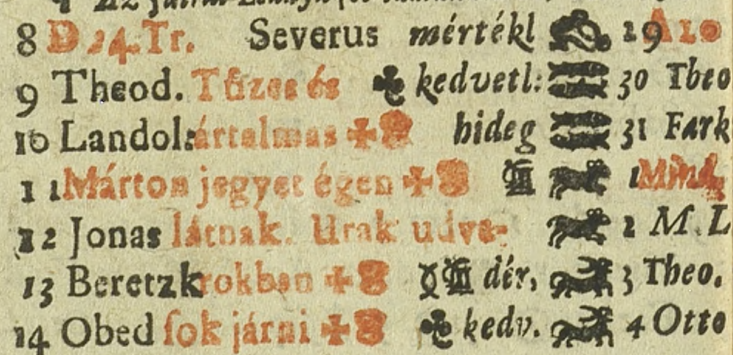 8 D 24. Tr. Severus mértékl 29
9 Theod. Tüzes és kedvetl: 30 Theo
10 Landol: ártalmas hideg 31 Fark
11 Márton jegyet égen 1 Mind.
12 Jonas látnak. Urak udva- 2 M. L
13 Beretzk rokban dér, 3 Theo.
14 Obed sok járni kedv. 4 Otto